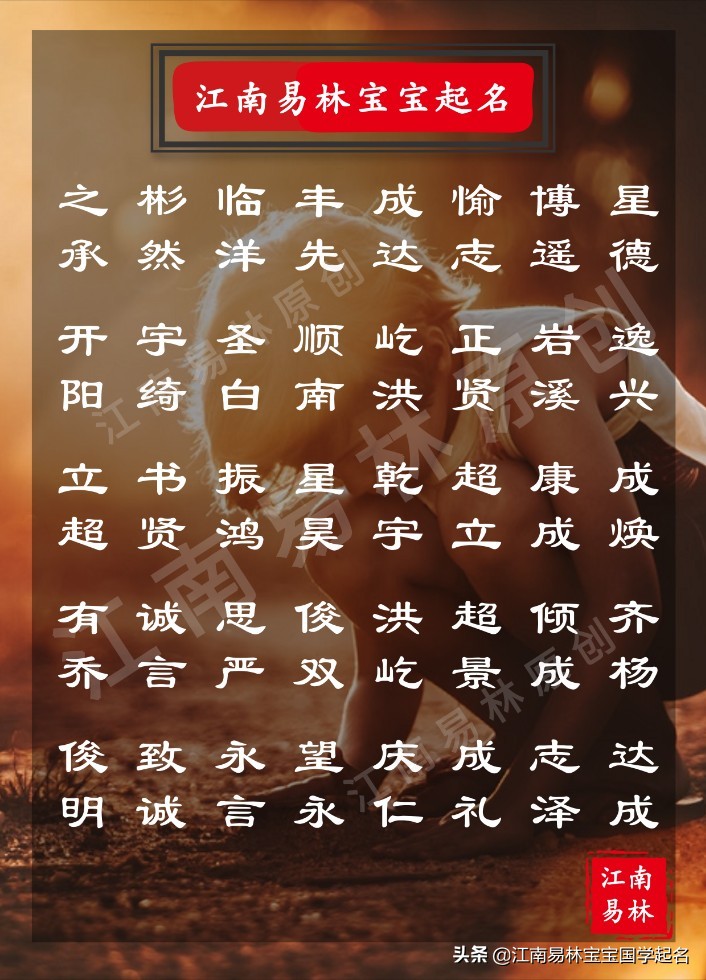 江南易林宝宝起名
之 彬 临 丰 成 愉 博 星
承 然 洋 先 达 志 遥 德
开 宇 圣 顺 屹 正 岩 逸
阳 绮 白 南 洪 贤 溪 兴
立 书 振 星 乾 超 康 成
超 贤 鸿 昊 宇 立 成 焕
有 诚 思 俊 洪 超 倾 齐
乔 言 严 双 屹 景 成 杨
俊 致 永 望 庆 成 志 达
明 诚 言 永 仁 礼 泽 成
江南易林原创
江南易林原创
江南易林原创
江南
易林
头条 @江南易林宝宝国学起名